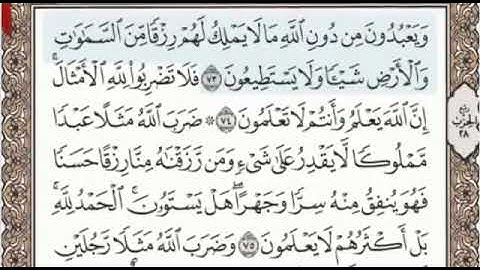 وَيَعْبُدُونَ مِن دُونِ ٱللَّهِ مَا لَا يَمْلِكُ لَهُمْ رِزْقًا مِّنَ ٱلسَّمَٰوَٰتِ
وَٱلْأَرْضِ شَيْـًٔا وَلَا يَسْتَطِيعُونَ ٧٣ فَلَا تَضْرِبُوا۟ لِلَّهِ ٱلْأَمْثَالَ ۚ
إِنَّ ٱللَّهَ يَعْلَمُ وَأَنتُمْ لَا تَعْلَمُونَ ٧٤ ۞ ضَرَبَ ٱللَّهُ مَثَلًا عَبْدًا
مَّمْلُوكًا لَّا يَقْدِرُ عَلَىٰ شَىْءٍ وَمَن رَّزَقْنَٰهُ مِنَّا رِزْقًا حَسَنًا
فَهُوَ يُنفِقُ مِنْهُ سِرًّا وَجَهْرًا ۖ هَلْ يَسْتَوُۥنَ ۚ ٱلْحَمْدُ لِلَّهِ ۚ
بَلْ أَكْثَرُهُمْ لَا يَعْلَمُونَ ٧٥ وَضَرَبَ ٱللَّهُ مَثَلًا رَّجُلَيْنِ
ربع
الحزب
٢٨